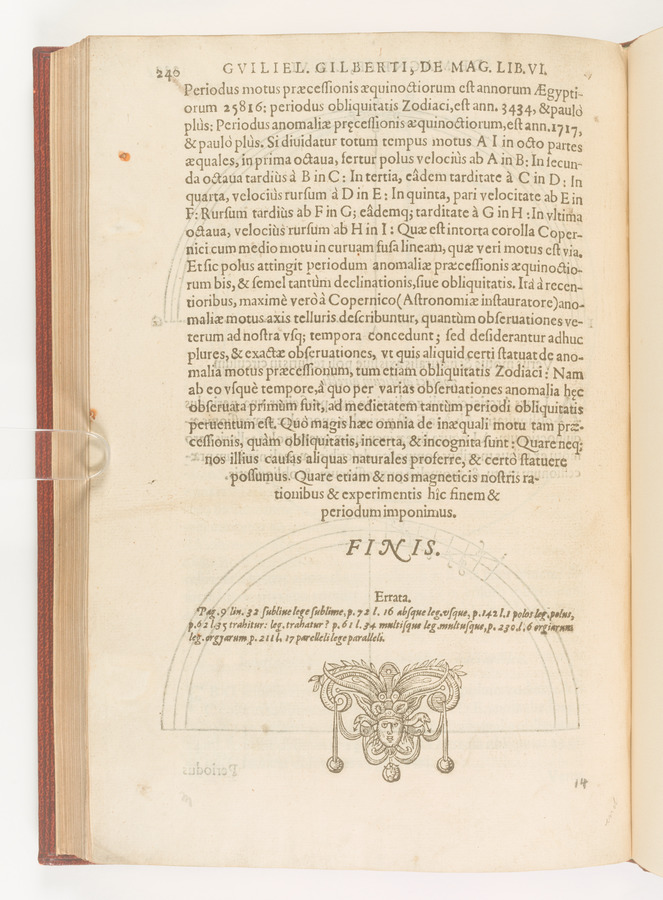 240 GVILIEL. GILBERTI, DE MAG. LIB. VI.
Periodus motus præcessionis æquinoctiorum est annorum Ægypti-
orum 25816: periodus obliquitatis Zodiaci, est ann. 3434, & paulò
plùs: Periodus anomaliæ pręcessionis æquinoctiorum, est ann. 1717,
& paulò plùs. Si diuidatur totum tempus motus A I in octo partes
æquales, in prima octaua, fertur polus velociùs ab A in B: In secun-
da octaua tardiùs à B in C: In tertia, eâdem tarditate à C in D: In
quarta, velociùs rursum à D in E: In quinta, pari velocitate ab E in
F: Rursum tardiùs ab F in G; eâdemq; tarditate à G in H: In vltima
octaua, velociùs rursum ab H in I: Quæ est intorta corolla Coper-
nici cum medio motu in curuam fusa lineam, quæ veri motus est via.
Et sic polus attingit periodum anomaliæ præcessionis æquinoctio-
rum bis, & semel tantùm declinationis, siue obliquitatis. Ità à recen-
tioribus, maximè verò à Copernico (Astronomiæ instauratore) ano-
maliæ motus axis telluris describuntur, quantùm obseruationes ve-
terum ad nostra vsq; tempora concedunt; sed desiderantur adhuc
plures, & exactæ obseruationes, vt quis aliquid certi statuat de ano-
malia motus præcessionum, tum etiam obliquitatis Zodiaci: Nam
ab eo vsquè tempore, à quo per varias obseruationes anomalia hęc
obseruata primùm fuit, ad medietatem tantùm periodi obliquitatis
peruentum est. Quò magis hæc omnia de inæquali motu tam præ-
cessionis, quàm obliquitatis, incerta, & incognita sunt: Quare neq;
nos illius causas aliquas naturales proferre, & certò statuere
possumus. Quare etiam & nos magneticis nostris ra-
tionibus & experimentis hîc finem &
periodum imponimus.
FINIS.
Errata.
Pag. 9 lin. 32 subline lege sublime, p. 72 l. 16 absque leg. vsque, p. 142 l. 1 polos leg. polus,
p. 62 l. 35 trahitur: leg. trahatur? p. 61 l. 34 multisque leg. multusque, p. 230. l. 6 orgiarum
leg. orgyarum p. 211 l. 17 parelleli lege paralleli.
14